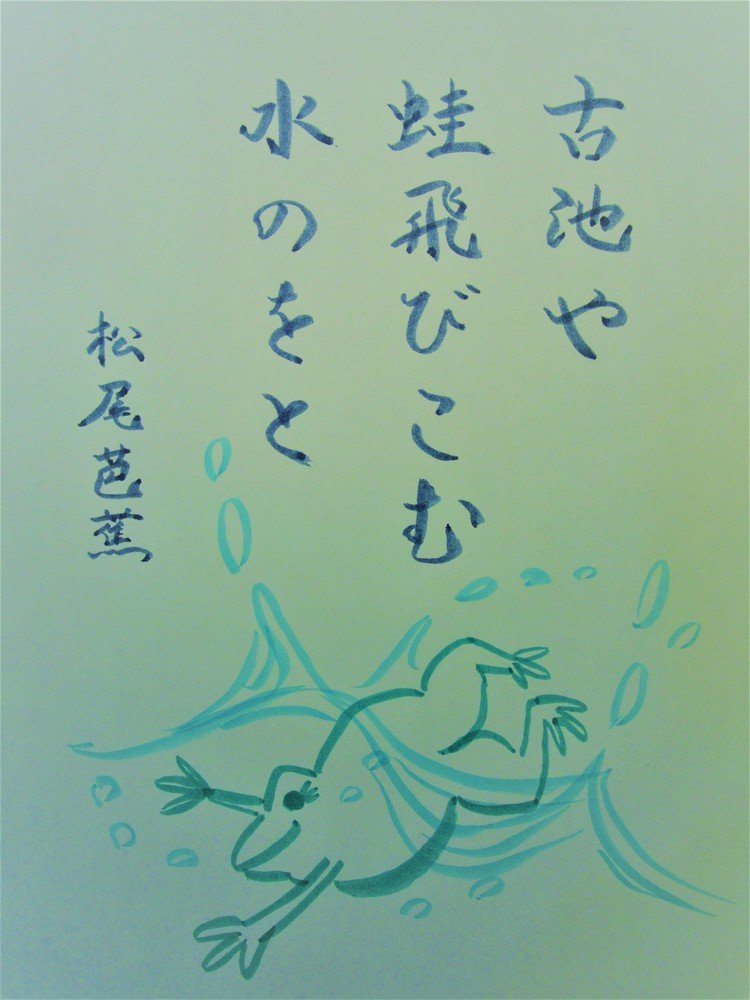 古池や
蛙飛びこむ
水のをと
松尾芭蕉